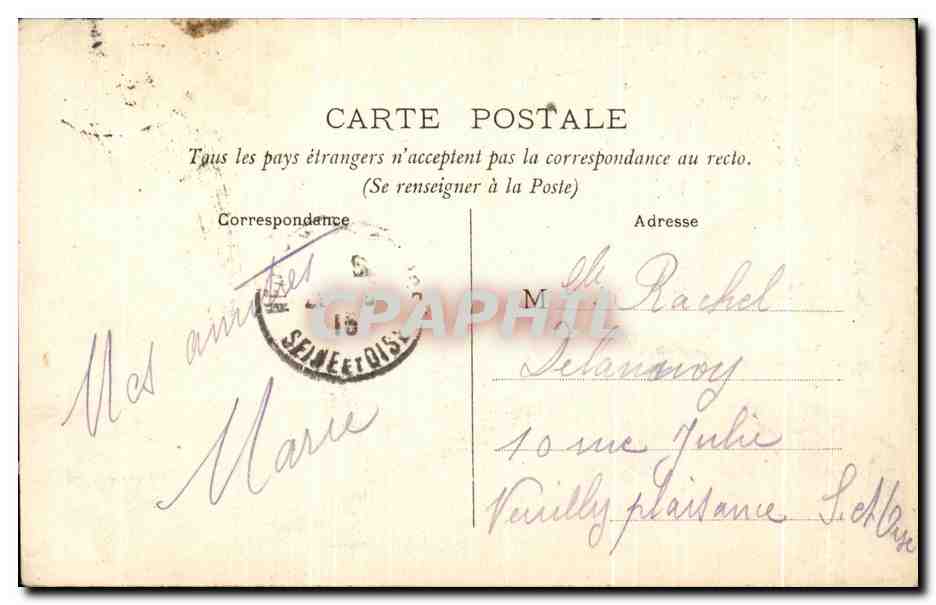 CARTE POSTALE
Tous les pays étrangers n'acceptent pas la correspondance au recto.
(Se renseigner à la Poste)
Correspondance
Mes amitiés
Marie
SEINE ET OISE
15
Adresse
Mlle Rachel
Delannoy
10 rue Julie
Neuilly plaisance S. et Oise
CPAPHIL